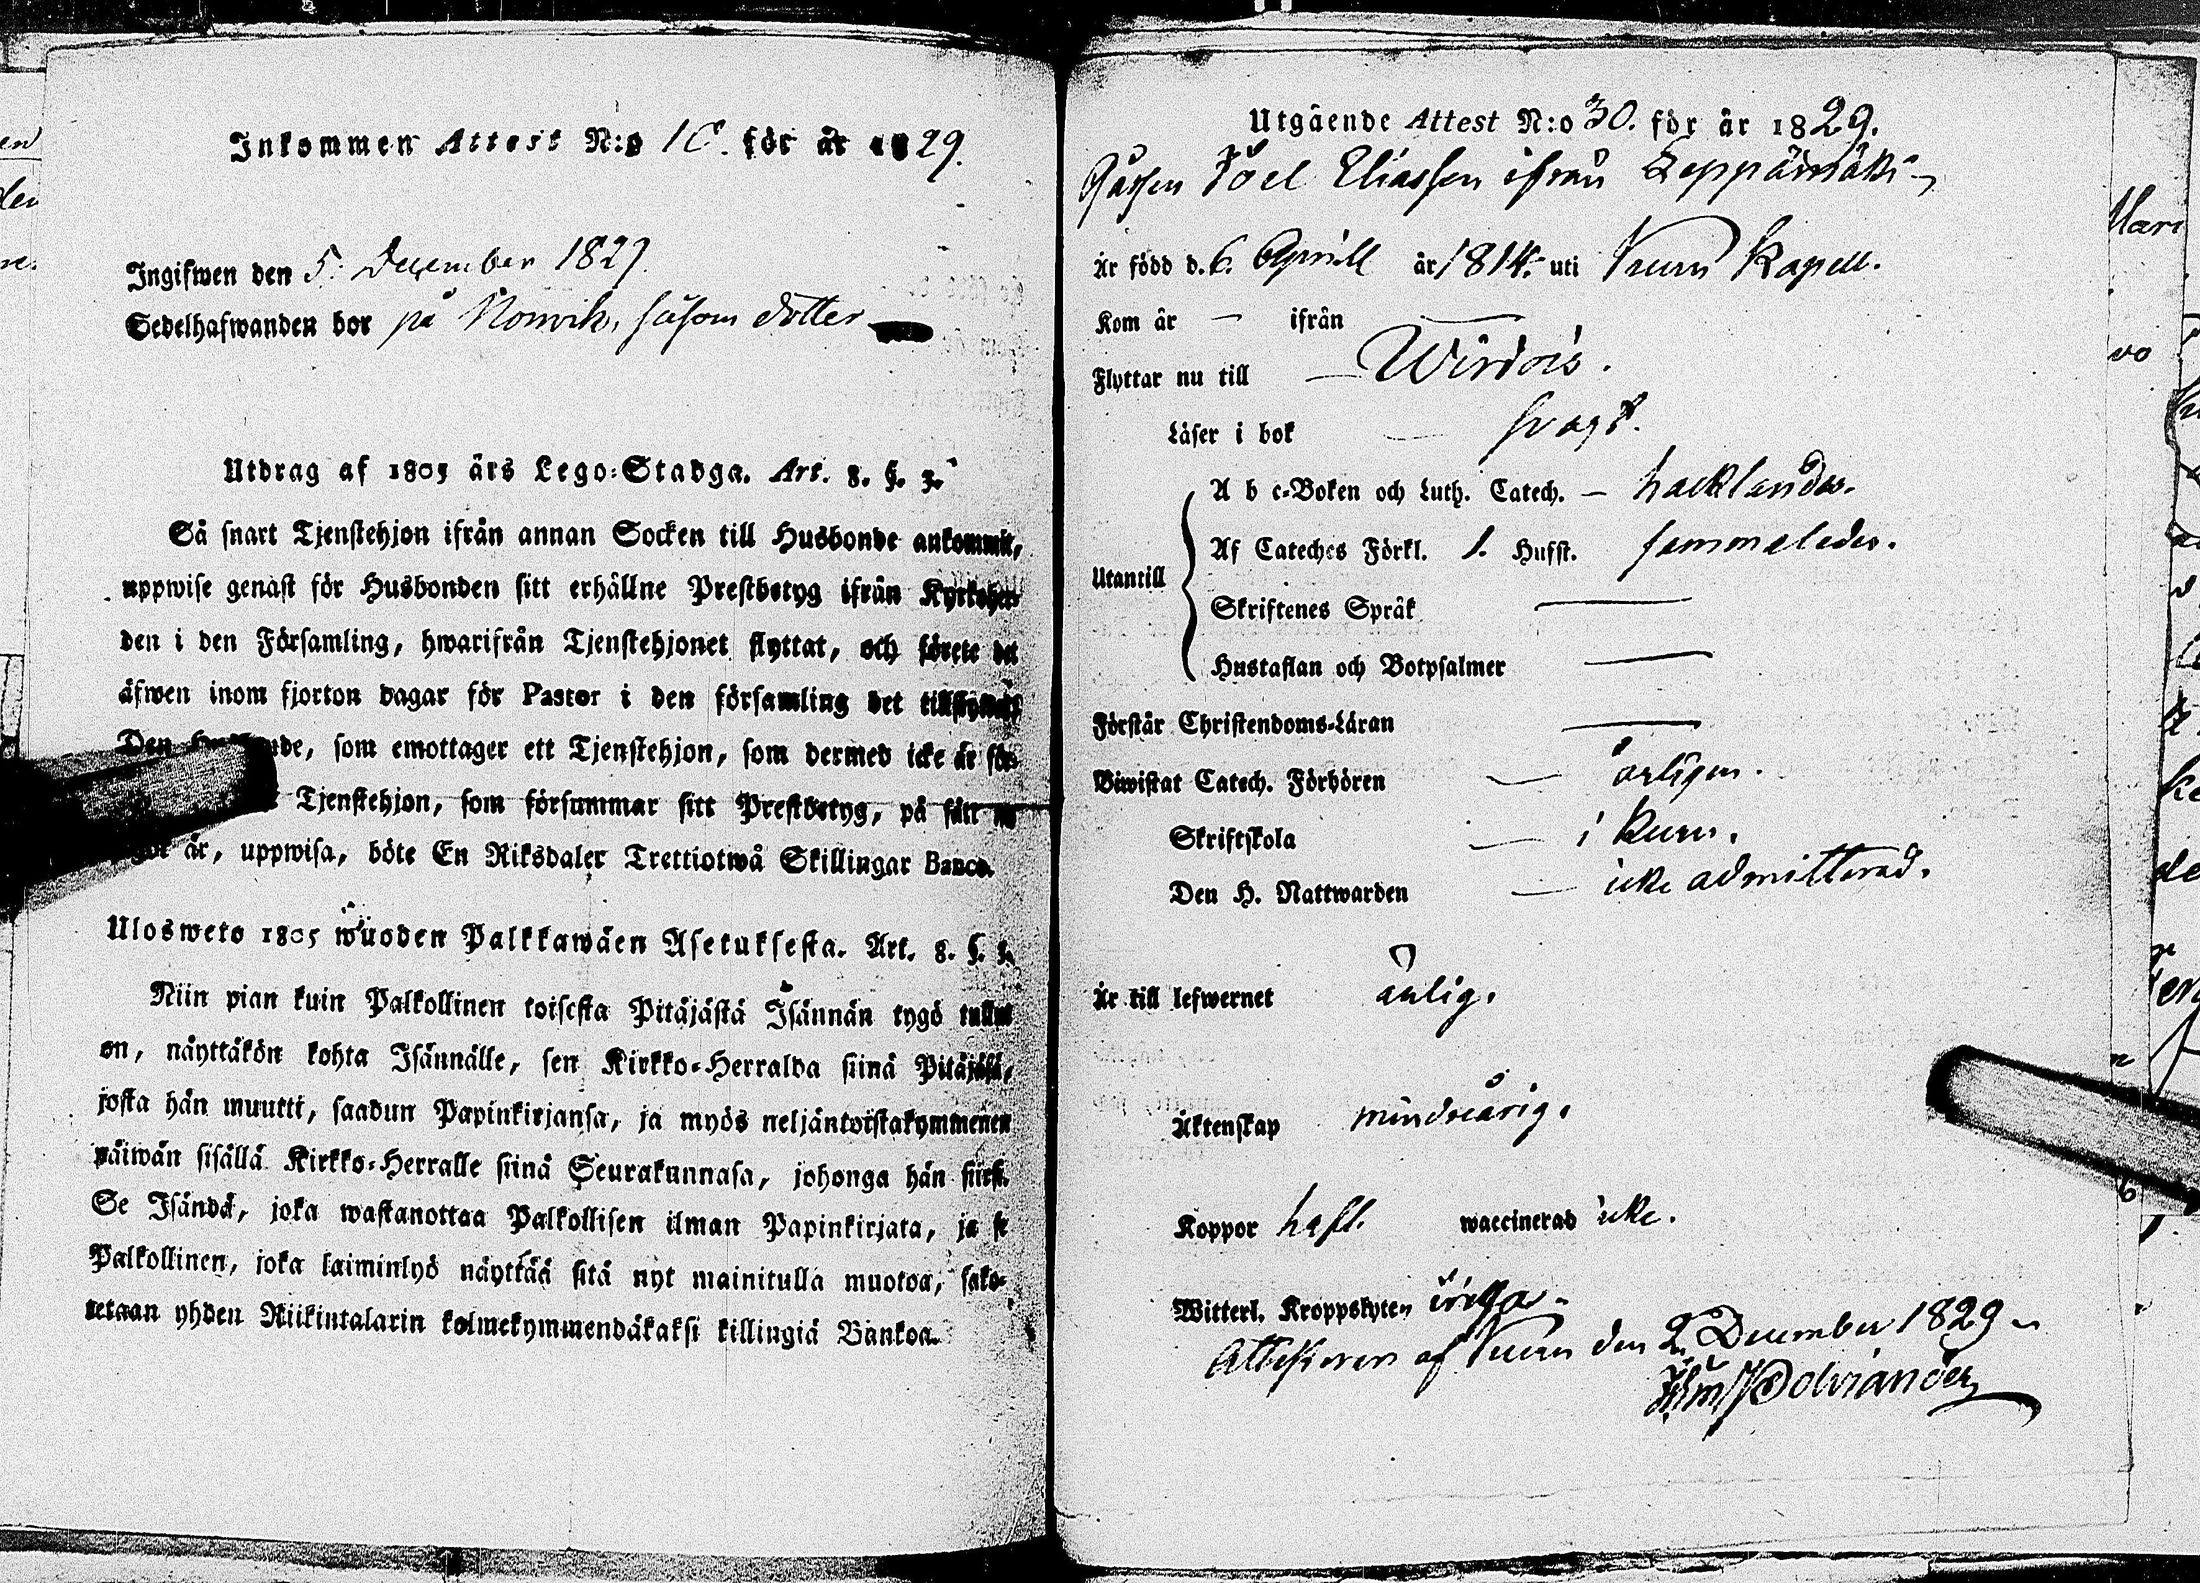 Inkommen Attest N:o 10. för år 1829.
Ingifwen den 5. December 1829.
Sedelhafwanden bor på Norvik, såsom dotter
Utdrag af 1805 års Lego-Stadga. Art. 8. §. 3.
Så snart Tjenstehjon ifrån annan Socken till Husbonde ankommit,
uppwise genast för Husbonden sitt erhållne Prestbetyg ifrån Kyrkoher-
den i den Församling, hwarifrån Tjenstehjonet flyttat, och förete det
äfwen inom fjorton dagar för Pastor i den församling det tillflyttat.
Den som emottager ett Tjenstehjon, som dermed icke är för-
Tjenstehjon, som försummar sitt Prestbetyg, på sätt
är, uppwisa, böte En Riksdaler Trettiotwå Skillingar Banco.
Ulosweto 1805 wuoden Palkkawäen Asetuksesta. Art. 8. §. 3.
Niin pian kuin Palkollinen toisesta Pitäjästä Isännän tygö tullut
on, näyttäkön kohta Isännälle, sen Kirkko-Herralda siinä Pitäjäsä,
josta hän muutti, saadun Papinkirjansa, ja myös neljäntoistakymmenen
päiwän sisällä Kirkko-Herralle siinä Seurakunnasa, johonga hän siirsi.
Se Isändä, joka wastanottaa Palkollisen ilman Papinkirjata, ja se
Palkollinen, joka laiminlyö näyttää sitä nyt mainitulla muotoa, sako-
tetaan yhden Riikintalarin kolmekymmendäkaksi killingiä Bankoa.
Utgående Attest N:o 30. för år 1829.
Gåssen Joel Eliasson ifrån Leppämäki
Är född d. 6. Aprill år 1814. uti Kuru Kapell.
Kom år — ifrån —
Flyttar nu till — Wirdois.
Läser i bok — svagt.
Utantill
A b c-Boken och Luth. Catech. — hacklandes.
Af Cateches Förkl. 1. Hufst. sammaledes.
Skriftenes Språk —
Hustaflan och Botpsalmer —
Förstår Christendoms-Läran —
Biwistat Catech. Förhören — årligen.
Skriftskola — i Kuru.
Den H. Nattwarden — icke admitterad.
Är till lefwernet ärlig.
Äktenskap minderårig.
Koppor haft. waccinerad icke.
Witterl. Kroppslyten inga.
Attesteras af Kuru den 2. December 1829